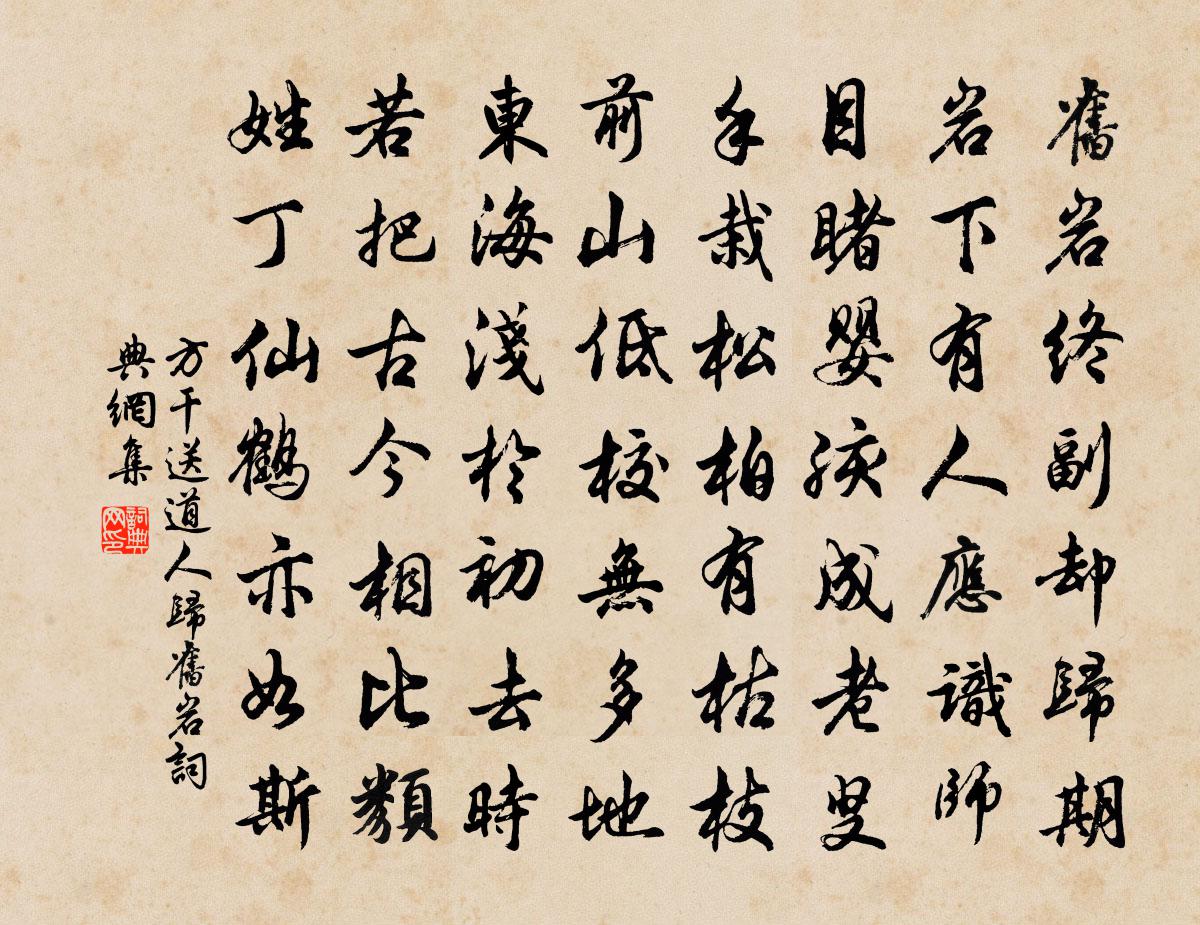 舊岩終副却歸期
岩下有人應識師
目睹嬰孩成老叟
手栽松柏有枯枝
前山低校無多地
東海淺於初去時
若把古今相比類
姓丁仙鶴亦如斯
方干送道人歸舊岩詞
典網集
詞典
网印